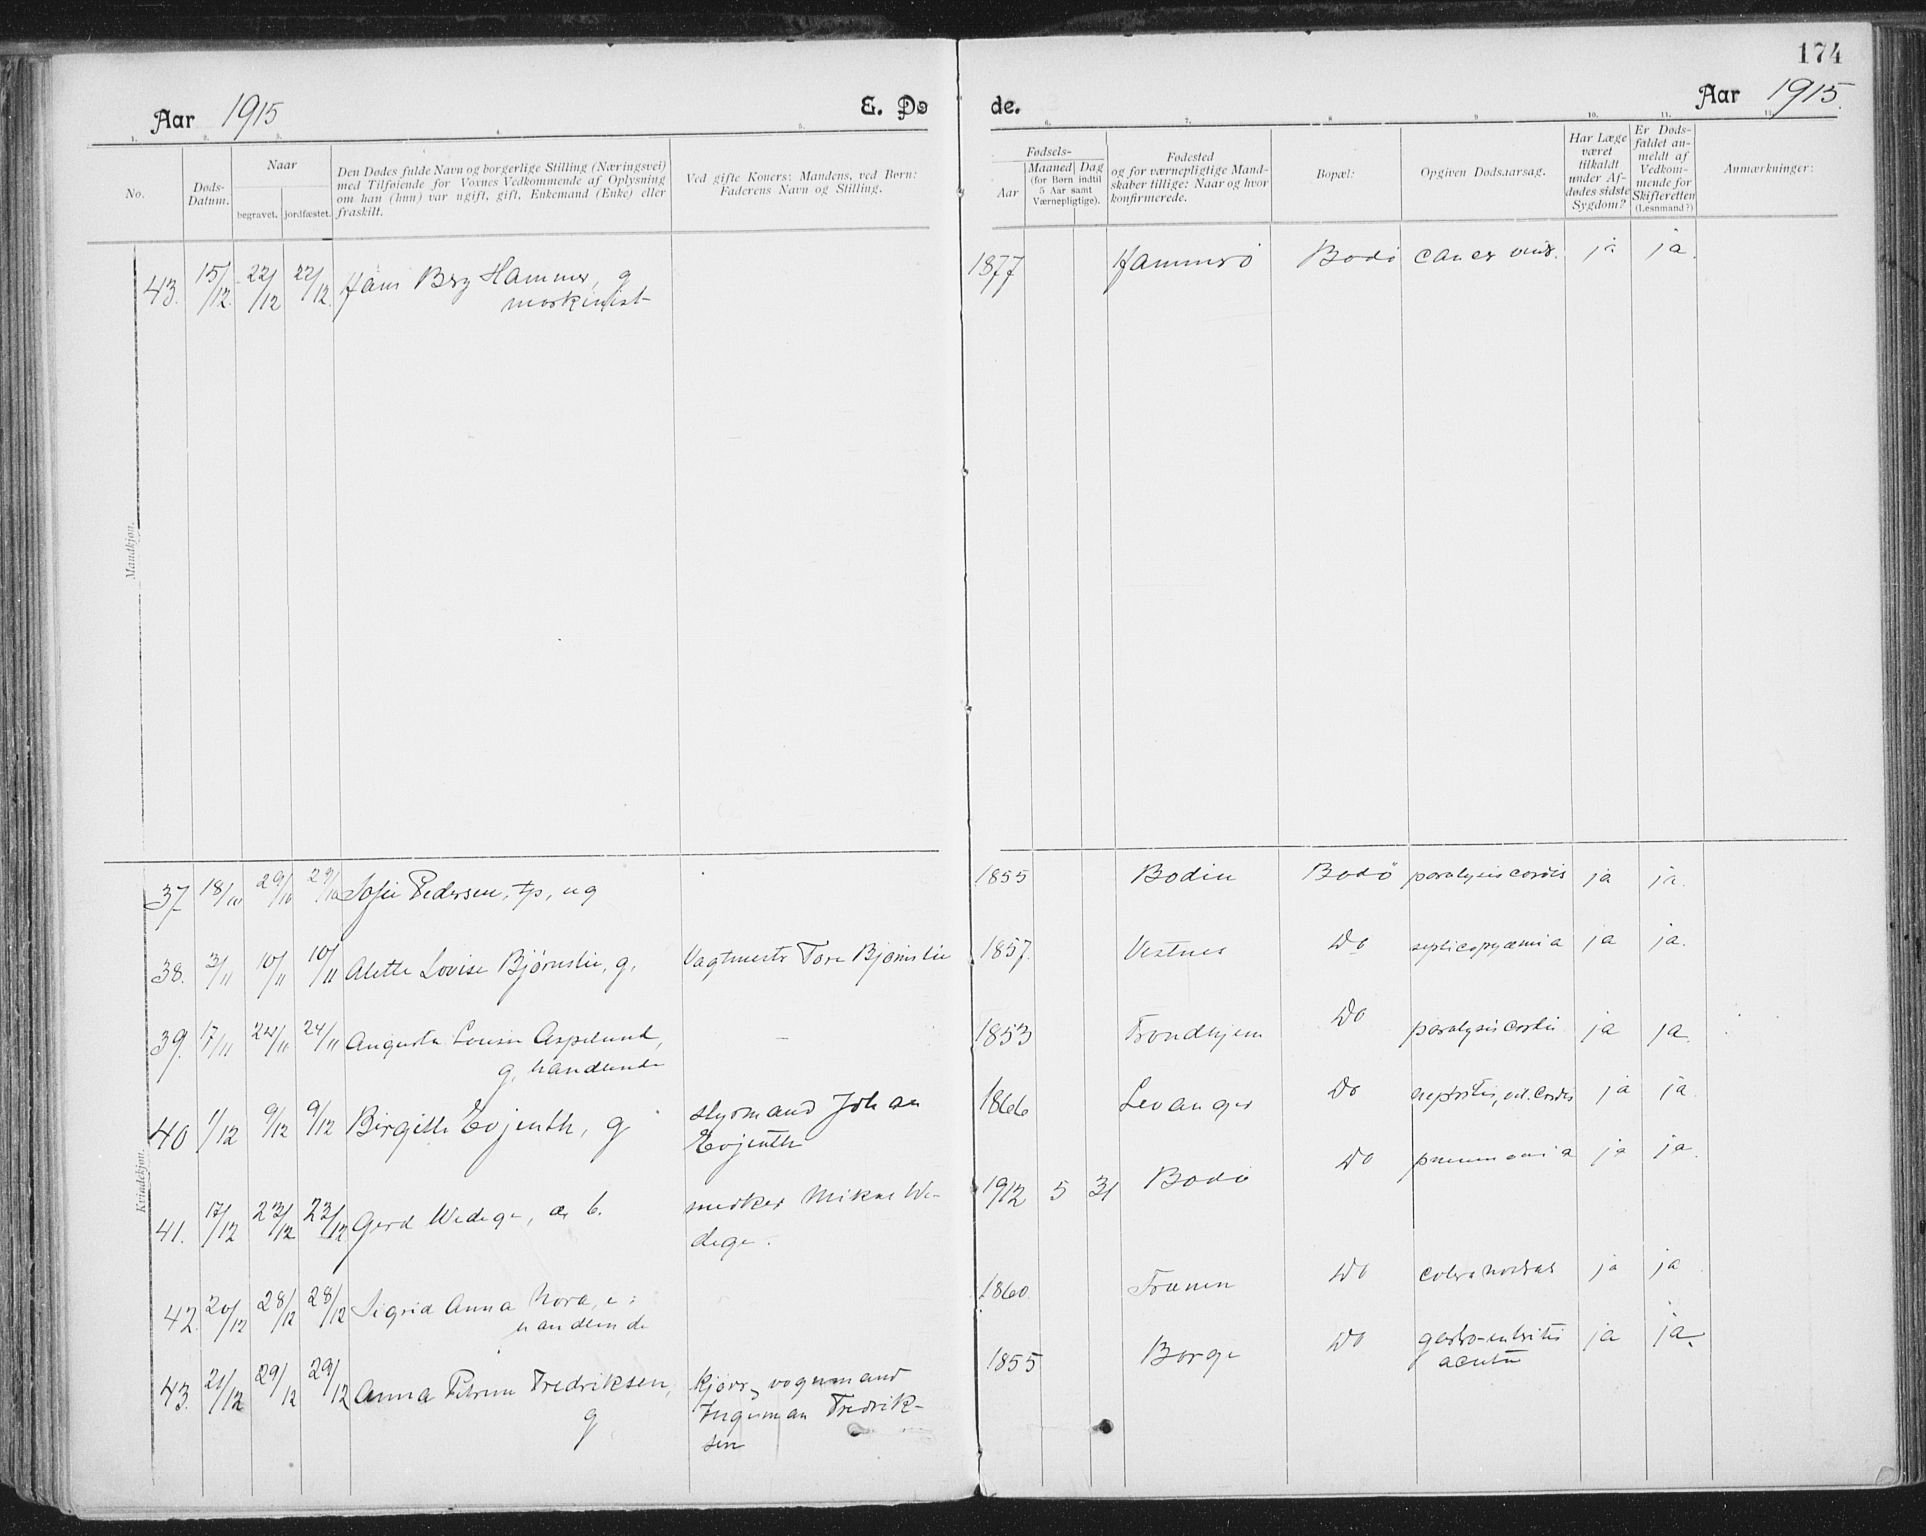 174
Aar 1915
E. Dø
de.
Aar 1915.
1. 2. 3. 4. 5. 6. 7. 8. 9. 10. 11. 12.
No.
Døds-
Datum.
Naar
begravet. jordfæstet.
Den Dødes fulde Navn og borgerlige Stilling (Næringsvei)
med Tilføiende for Voxnes Vedkommende af Oplysning
om han (hun) var ugift, gift, Enkemand (Enke) eller
fraskilt.
Ved gifte Koners: Mandens, ved Børn:
Faderens Navn og Stilling.
Fødsels-
Aar
Maaned Dag
(for Børn indtil
5 Aar samt
Værnepligtige).
Fødested
og for værnepligtige Mand-
skaber tillige: Naar og hvor
konfirmerede.
Bopæl:
Opgiven Dødsaarsag.
Har Læge
været
tilkaldt
under Af-
dødes sidste
Sygdom?
Er Døds-
faldet an-
meldt af
Vedkom-
mende for
Skifteretten
(Lensmand?)
Anmærkninger:
Mandkjøn.
43. 15/12. 22/12 22/12. Hans Berg Hammer, g 1877 Hammerø Bodø ja ja
maskinist
Kvindekjøn.
37 18/10 29/10 29/10 Sofie Pedersen, ug 1855 Bodin Bodø paralysis cordis ja ja.
38. 3/11 10/11 10/11 Alette Lovise Bjørnslie, g. Vagtmestr Tore Bjørnslie 1857. Vestnes Do septicopyæmia ja ja.
39. 17/11 24/11 24/11 Augusta Lovise Aspelund, — 1853 Trondhjem Do paralysis cordis ja ja.
g. handlende
40 1/12 9/12 9/12 Birgitte Evjenth, g styrmand Johan 1866 Levanger Do nephritis, vit. cordis ja ja.
Evjenth
41. 17/12 23/12 23/12 Gerd Wedege, æ b. snedker Mikal We- 1912 5 31 Bodø Do pneumonia ja ja.
dege.
42. 20/12 28/12 28/12 Sigrid Anna Nora, e: 1860 Do ja ja
handlende
43. 21/12 29/12 29/12 Anna Petrine Fredriksen, kjøre- vognmand 1855 Borge Do gastro-enteritis ja ja
g Ingeman Fredrik- acuta
sen